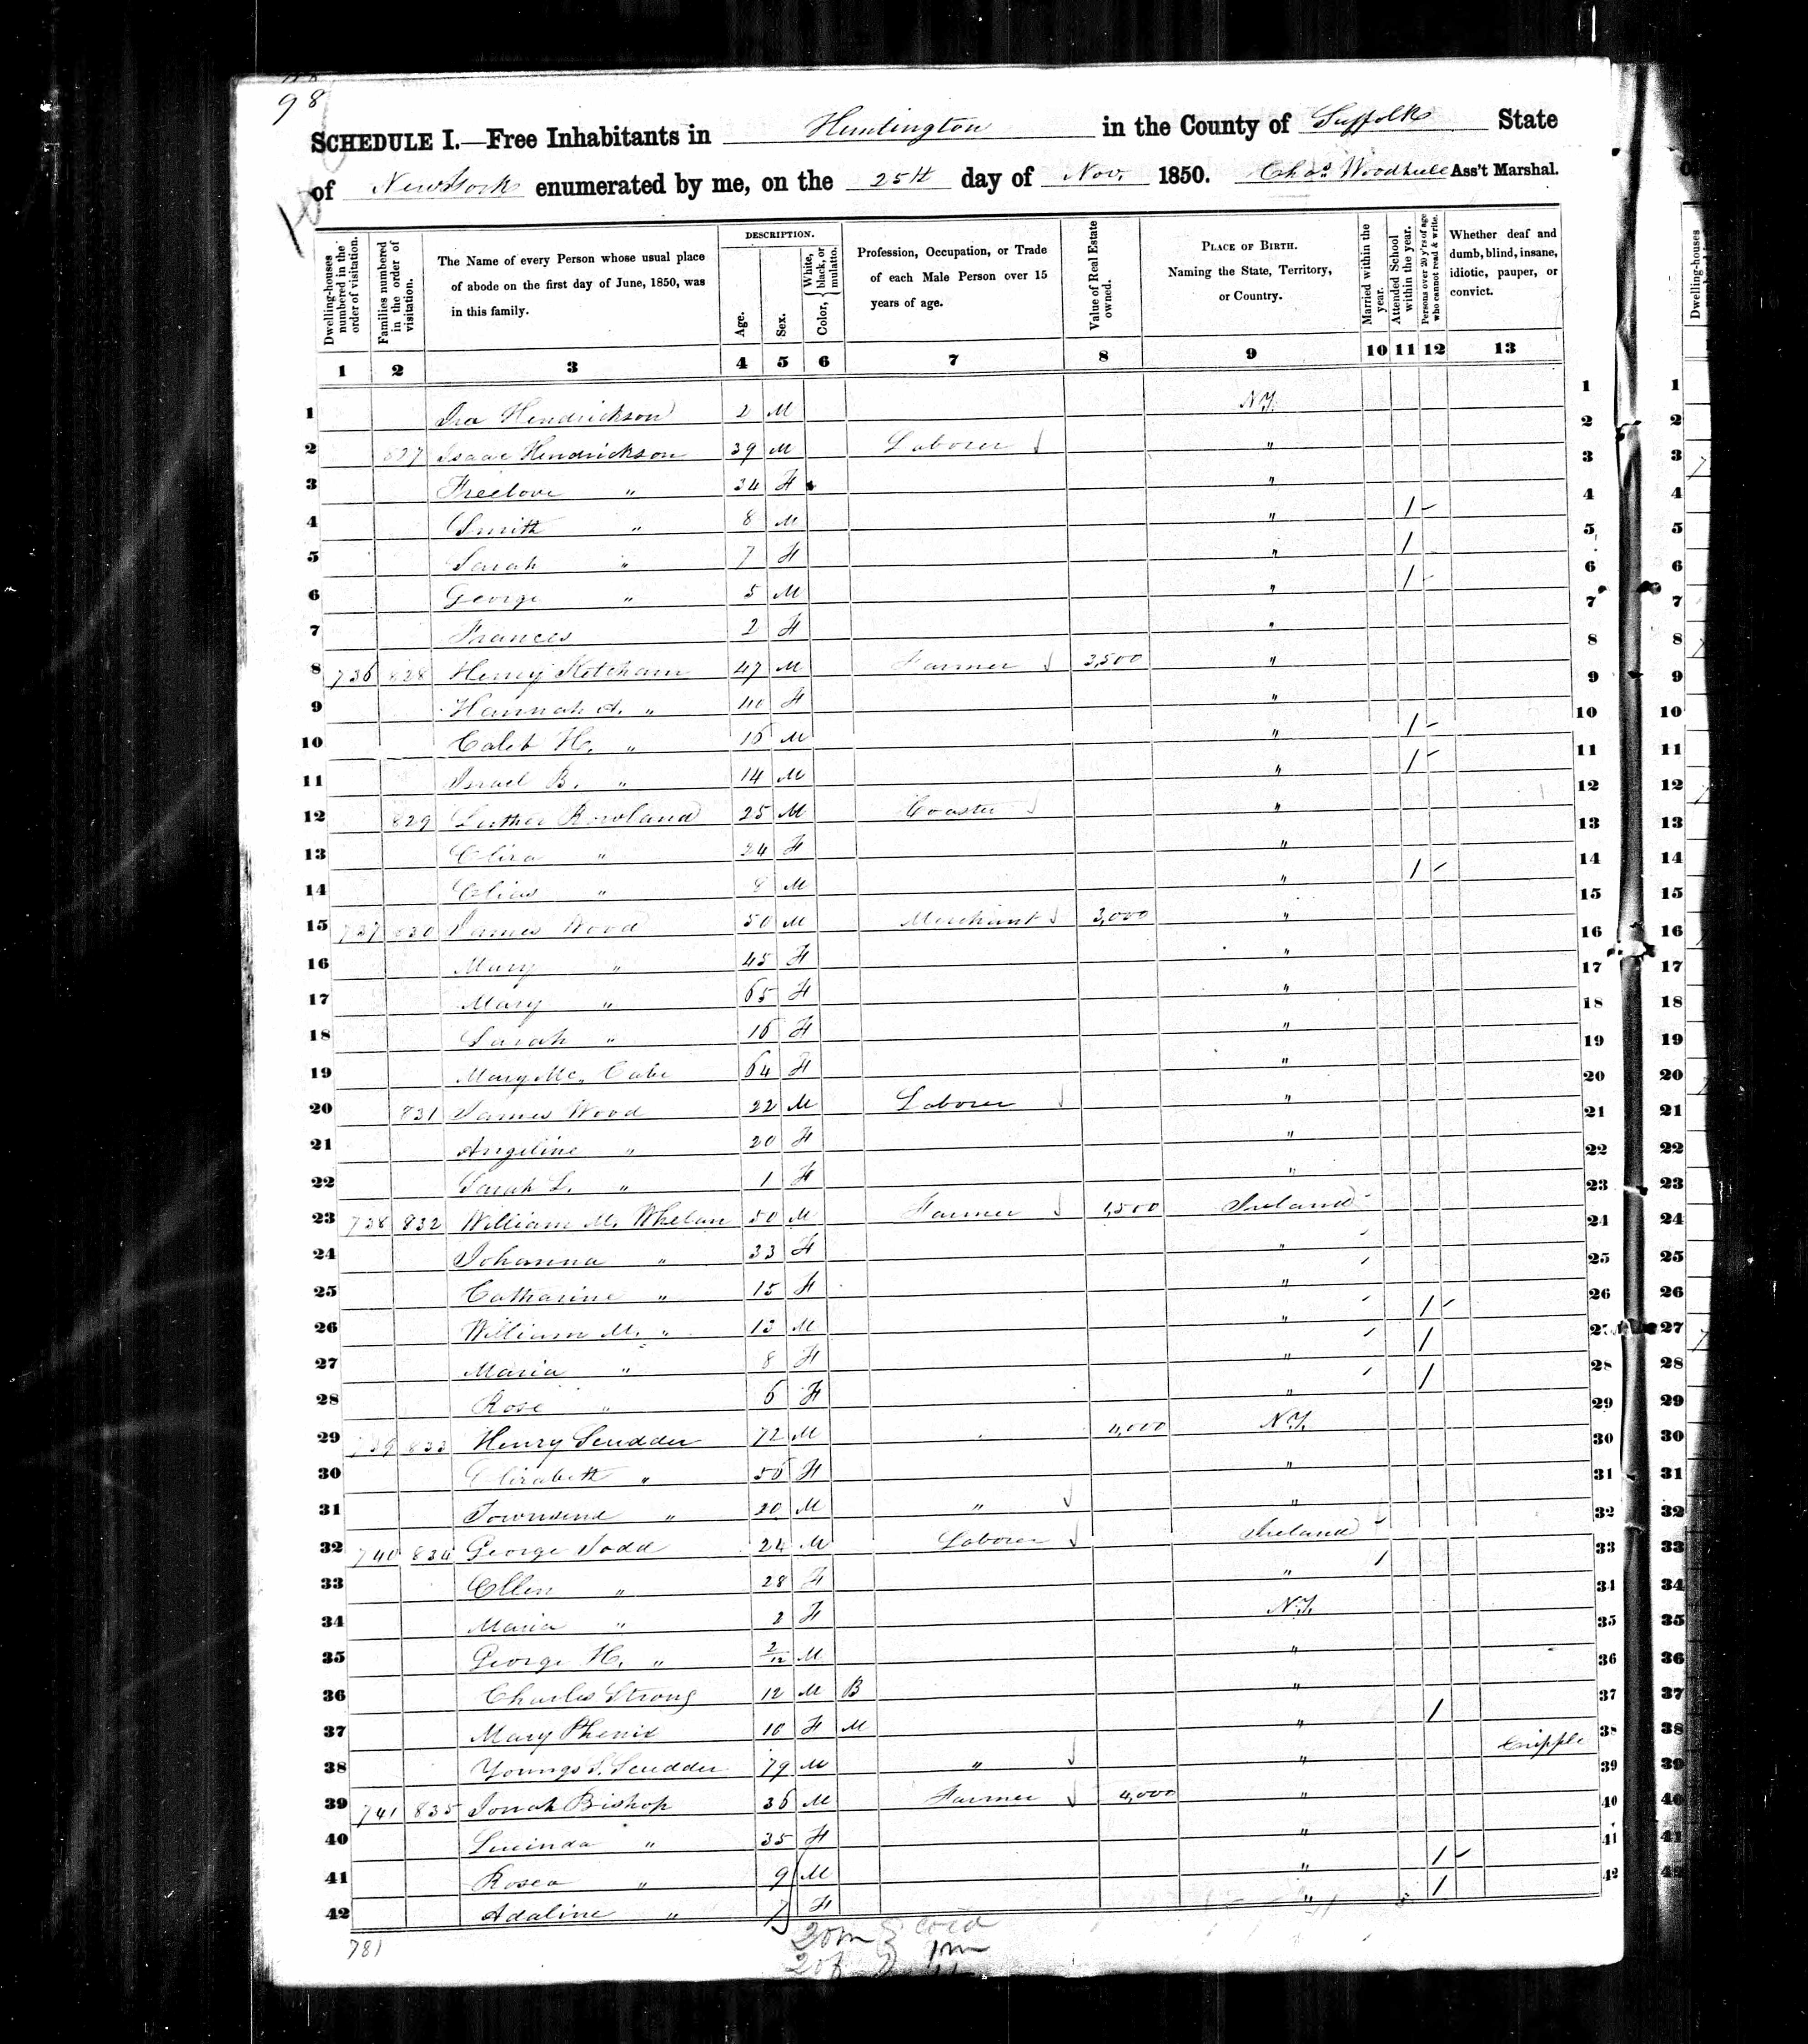 98
SCHEDULE I.—Free Inhabitants in Huntington in the County of Suffolk State
of New York enumerated by me, on the 25th day of Nov. 1850. Chas. Woodhull Ass't Marshal.
Dwelling-houses numbered in the order of visitation.
Families numbered in the order of visitation.
The Name of every Person whose usual place of abode on the first day of June, 1850, was in this family.
DESCRIPTION.
Age.
Sex.
Color, { White, black, or mulatto.
Profession, Occupation, or Trade of each Male Person over 15 years of age.
Value of Real Estate owned.
PLACE OF BIRTH. Naming the State, Territory, or Country.
Married within the year.
Attended School within the year.
Persons over 20 y'rs of age who cannot read & write.
Whether deaf and dumb, blind, insane, idiotic, pauper, or convict.
1 2 3 4 5 6 7 8 9 10 11 12 13
1 Ira Hendrickson 2 M N.Y. 1
2 827 Isaac Hendrickson 39 M Laborer " 2
3 Freelove " 34 F " 3
4 Smith " 8 M " / 4
5 Sarah " 7 F " / 5
6 George " 5 M " / 6
7 Frances 2 F " 7
8 736 828 Henry Ketcham 47 M Farmer 3,500 " 8
9 Hannah A. " 40 F " 9
10 Caleb H. " 16 M " / 10
11 Israel B. " 14 M " / 11
12 829 Luther Rowland 25 M Coaster " 12
13 Eliza " 24 F " 13
14 Elias " 8 M " / 14
15 737 830 James Wood 50 M Merchant 3,000 " 15
16 Mary " 45 F " 16
17 Mary " 65 F " 17
18 Sarah " 16 F " 18
19 Mary Mc. Cabe 64 F " 19
20 831 James Wood 22 M Laborer " 20
21 Angeline " 20 F " 21
22 Sarah L. " 1 F " 22
23 738 832 William M. Whelan 50 M Farmer 1,500 Ireland 23
24 Johanna " 33 F " 24
25 Catharine " 15 F " 25
26 William M. " 13 M " / 26
27 Maria " 8 F " / 27
28 Rose " 6 F " / 28
29 739 833 Henry Scudder 72 M 4,000 N.Y. 29
30 Elizabeth " 56 F " 30
31 Townsend " 20 M " " 31
32 740 834 George Todd 24 M Laborer Ireland 32
33 Ellen " 28 F " 33
34 Maria " 2 F N.Y. 34
35 George H. " 2/12 M " 35
36 Charles Strong 12 M B " 36
37 Mary Phenix 10 F M " / 37
38 Youngs S. Scudder 79 M " " Cripple 38
39 741 835 Jonah Bishop 36 M Farmer 4,000 " 39
40 Lucinda " 35 F " 40
41 " 9 M " / 41
42 Adaline " 7 F " / 42
781
20m
20f
1m